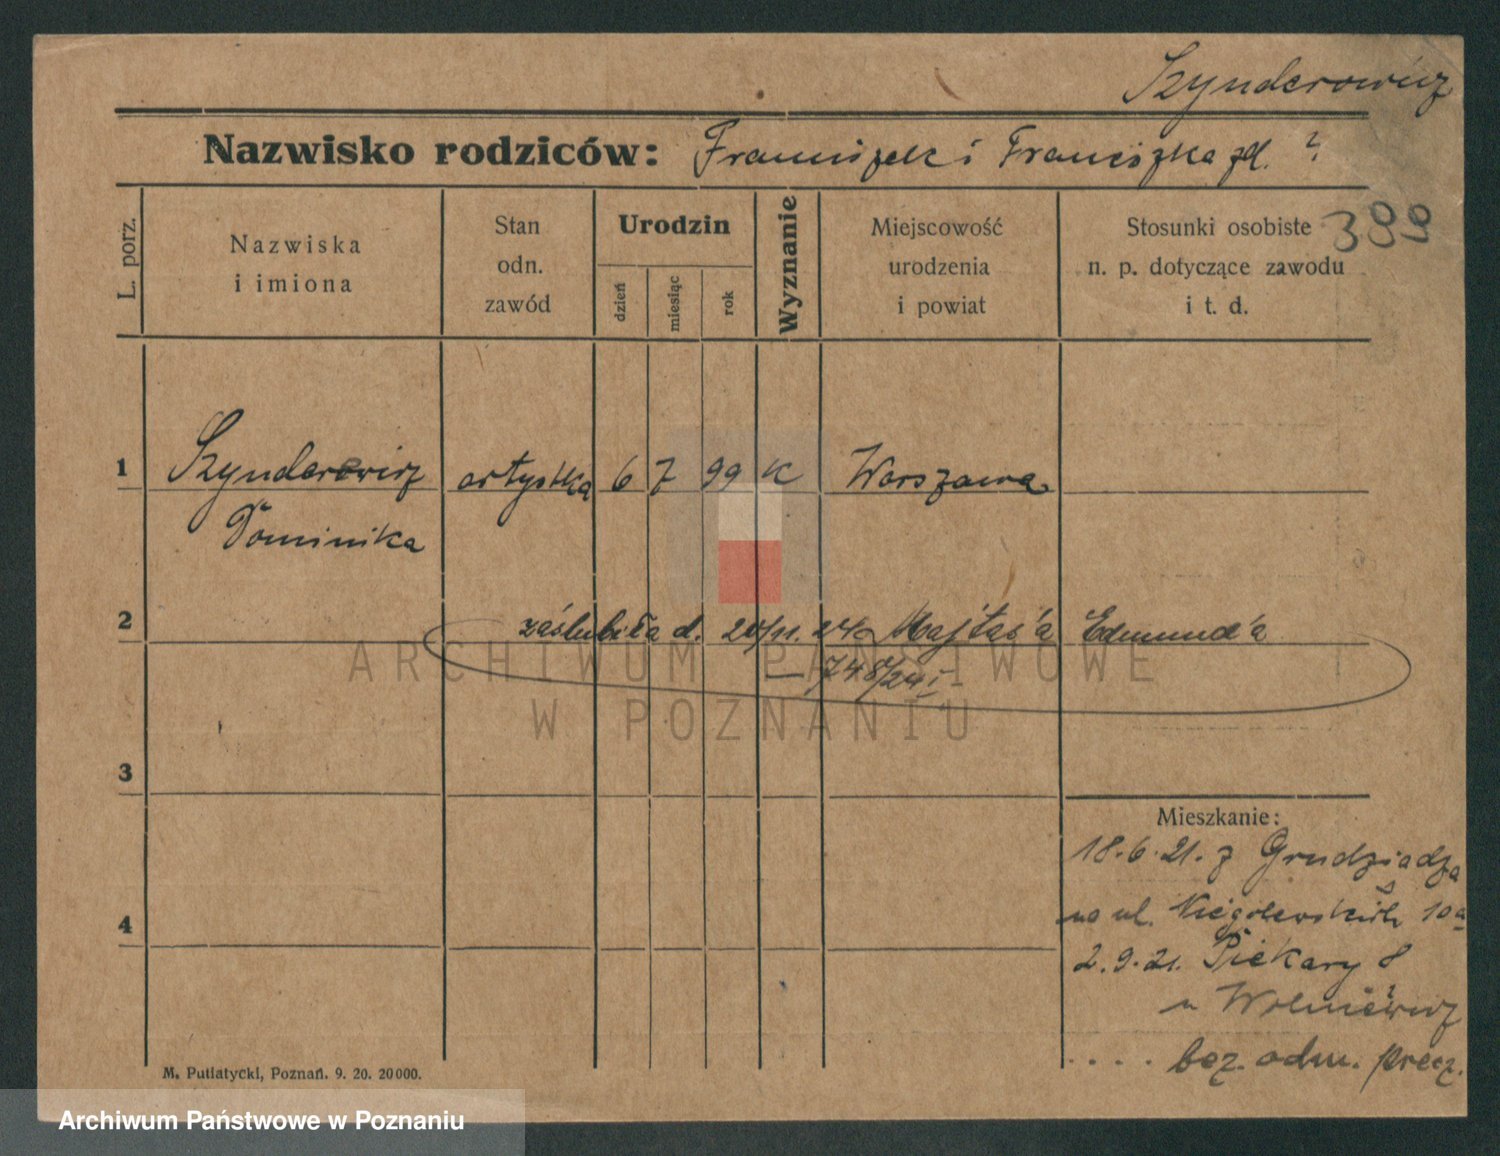 Szynderowicz
Nazwisko rodziców: Franciszek i Franciszka zd. ?
389
L. porz.
Nazwiska
i imiona
Stan
odn.
zawód
Urodzin
dzień
miesiąc
rok
Wyznanie
Miejscowość
urodzenia
i powiat
Stosunki osobiste
n. p. dotyczące zawodu
i t. d.
1 Szynderowicz artystka 6 7 99 K Warszawa
Dominika
2 zaślubiła d. 20/11. 24 Majtas'a Edmund'a
— 748/24 I
ARCHIWUM PAŃSTWOWE
W POZNANIU
3
Mieszkanie:
18.6.21. z Grudziądza
na ul. Niegolewskich 10a
4
2.9.21. Piekary 8
u
.... bez. odm. precz.
M. Putiatycki, Poznań. 9. 20. 20000.
Archiwum Państwowe w Poznaniu